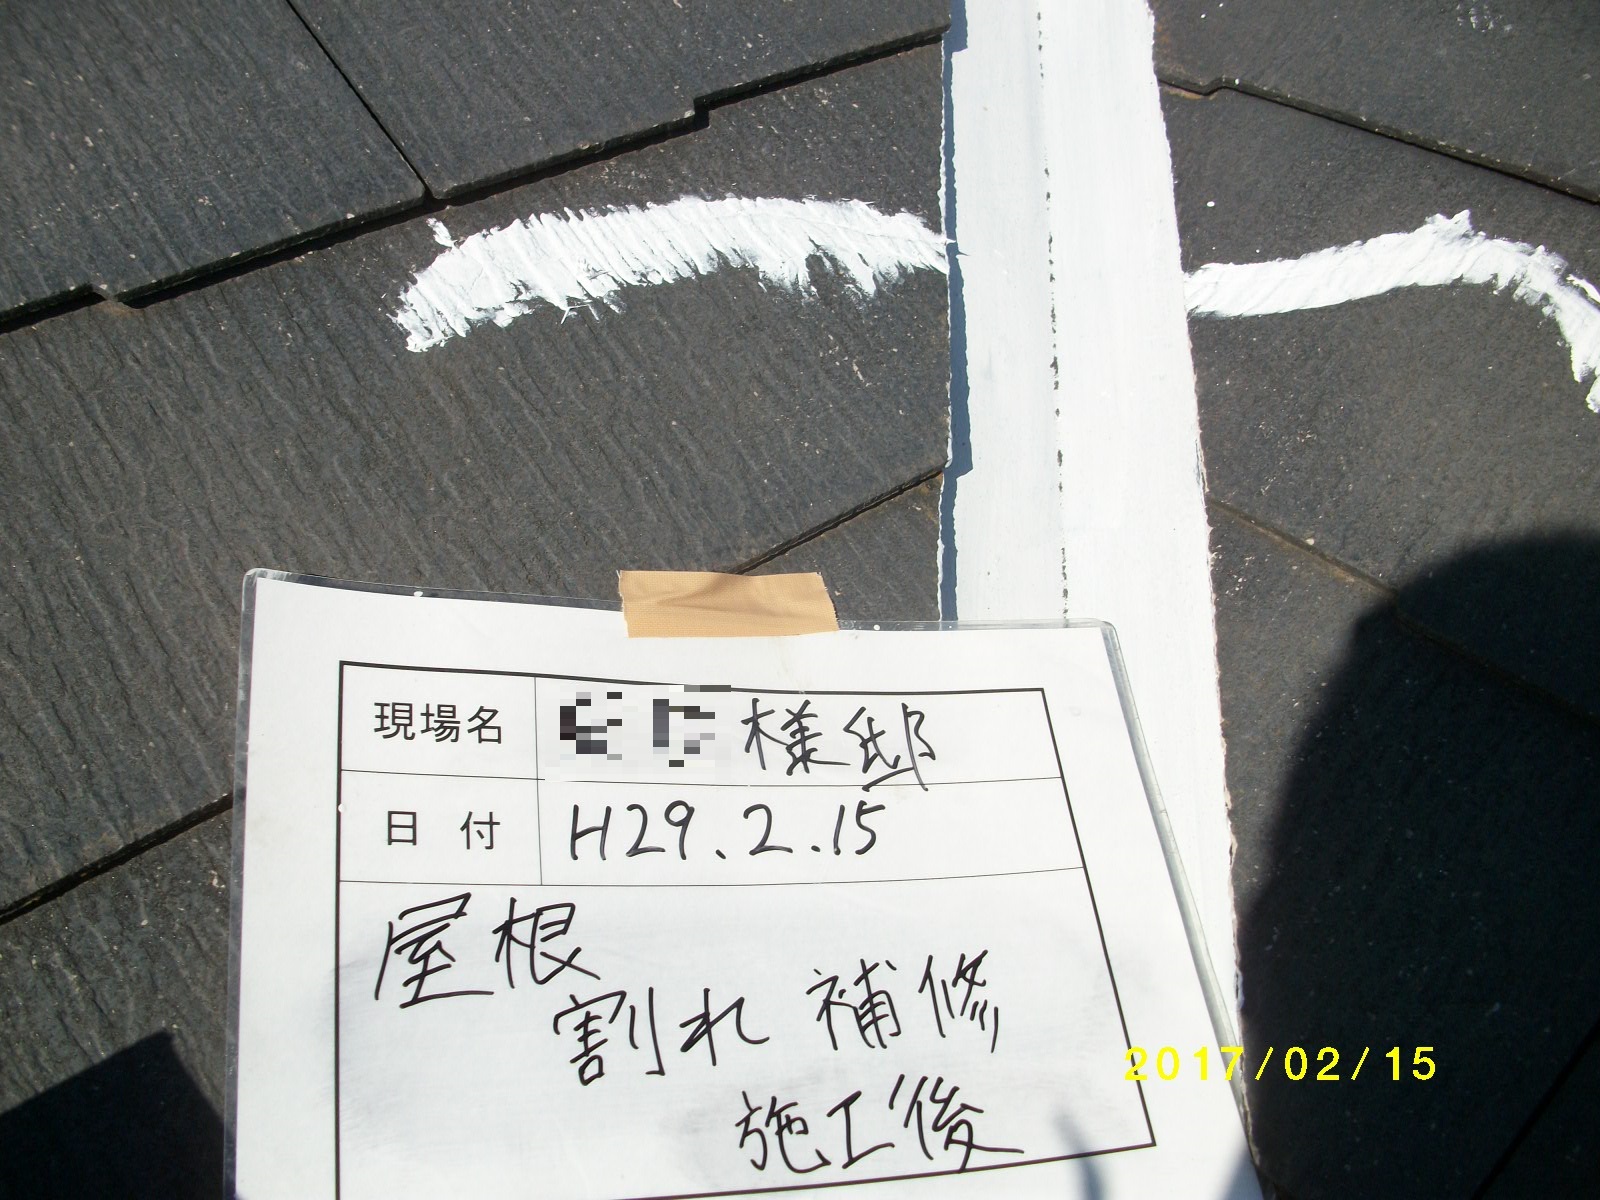 現場名 様邸
日付 H29.2.15
屋根
割れ補修
施工後
2017/02/15